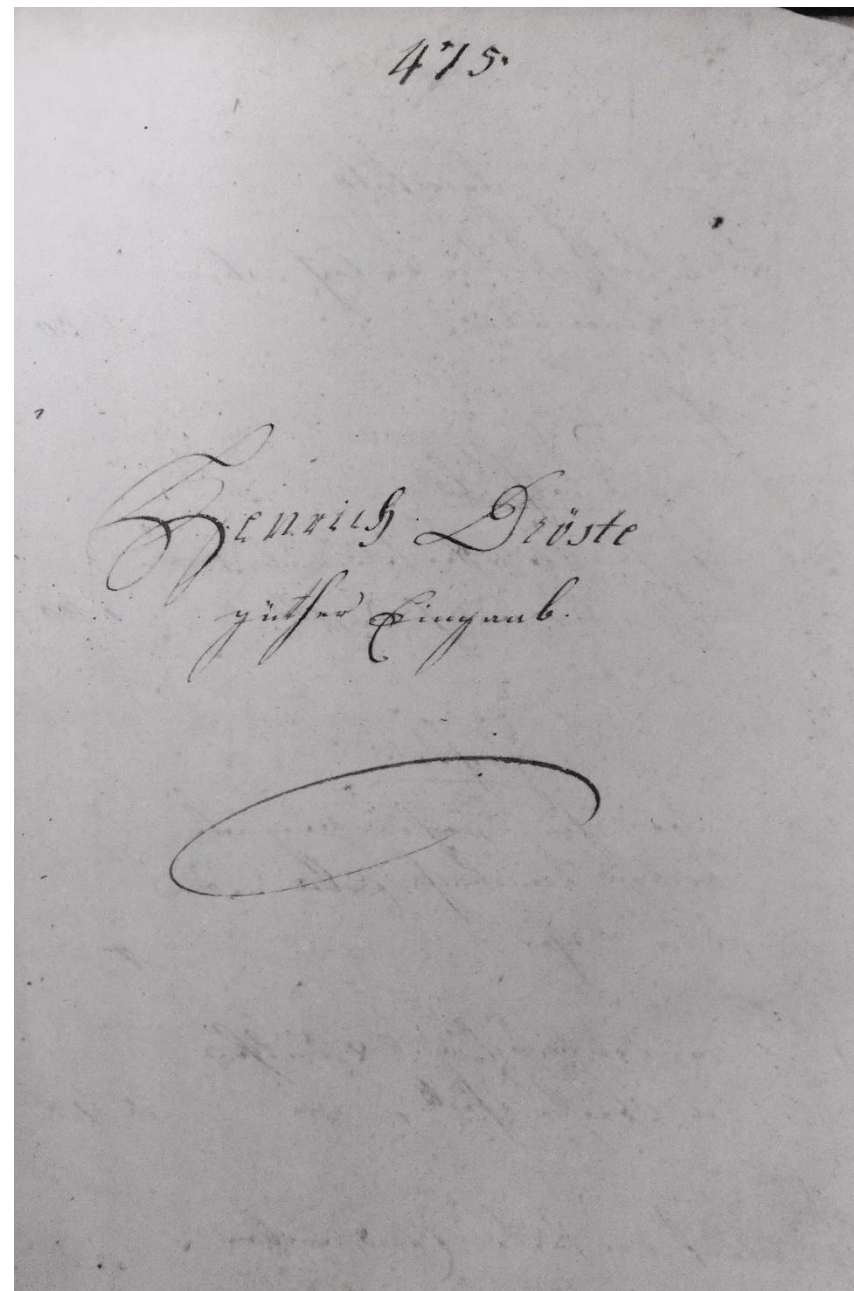 475.
Henrich Dröste
güther Eingaab.